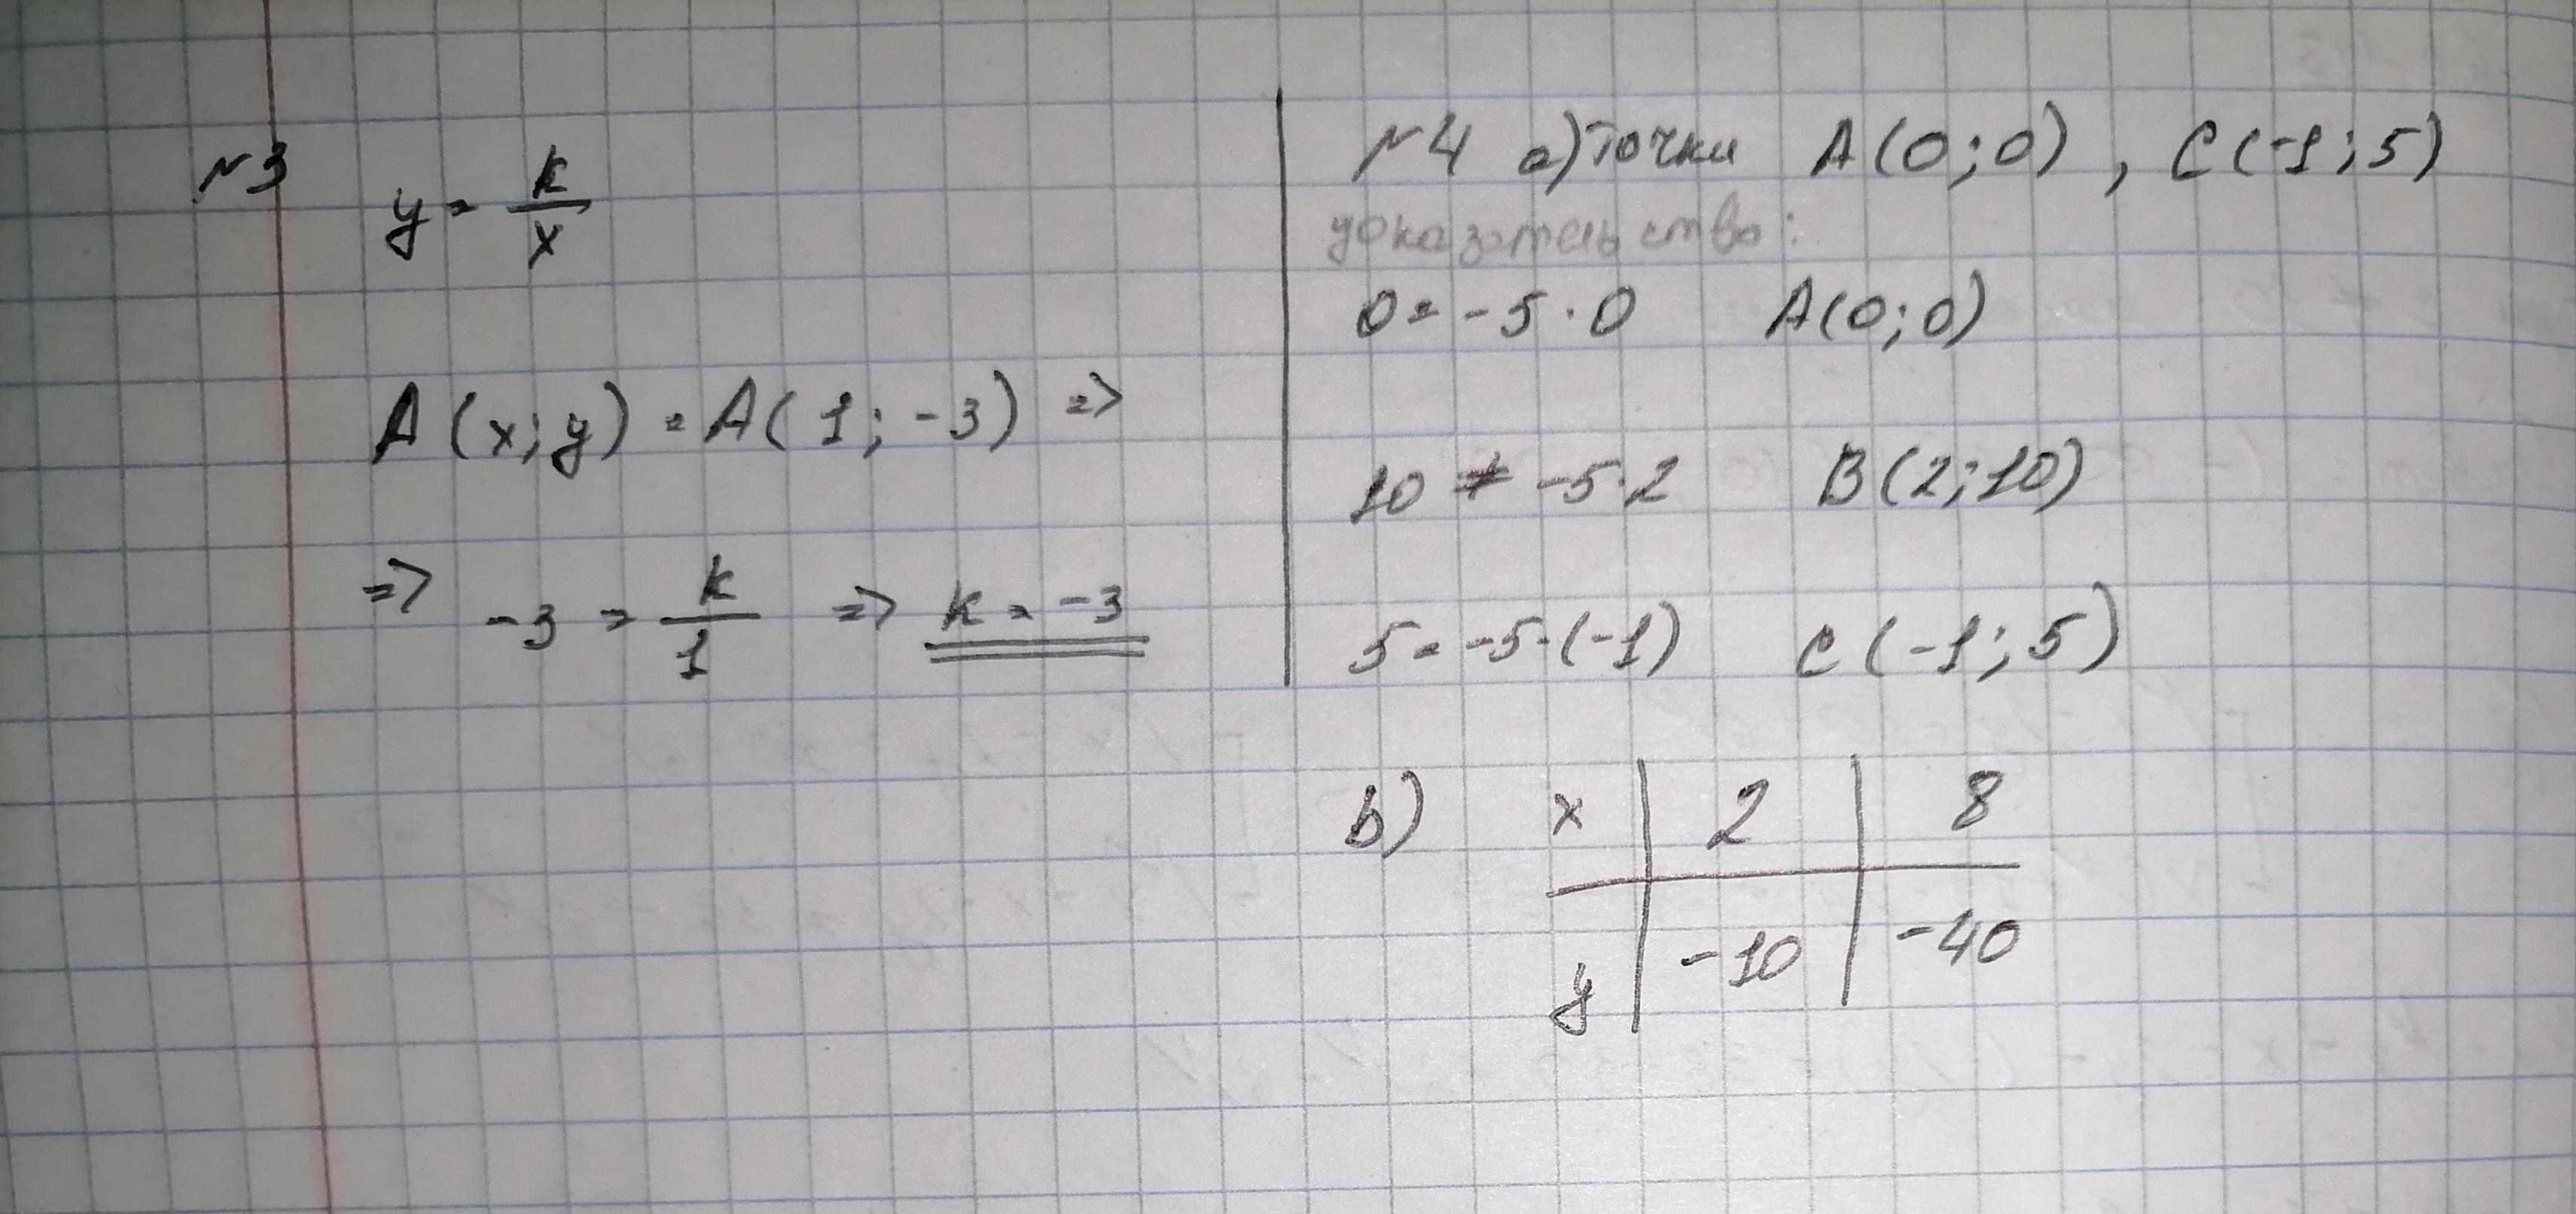 №3 y = k/x
A(x;y) = A(1;-3) =>
=> -3 = k/1 => k = -3
№4 а) точки A(0;0), C(-1;5)
доказательство:
0 = -5·0 A(0;0)
10 ≠ -5·2 B(2;10)
5 = -5·(-1) C(-1;5)
b) x | 2 | 8
y | -10 | -40